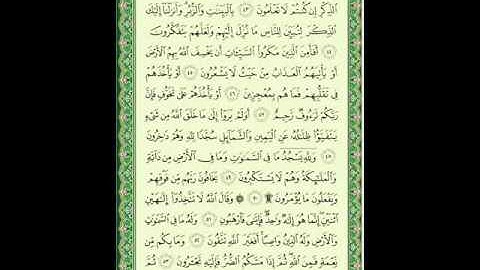 الذِّكْرِ إِن كُنتُمْ لَا تَعْلَمُونَ ٤٣ بِالْبَيِّنَٰتِ وَالزُّبُرِ وَأَنزَلْنَآ إِلَيْكَ
الذِّكْرَ لِتُبَيِّنَ لِلنَّاسِ مَا نُزِّلَ إِلَيْهِمْ وَلَعَلَّهُمْ يَتَفَكَّرُونَ
٤٤ أَفَأَمِنَ الَّذِينَ مَكَرُوا السَّيِّـَٔاتِ أَن يَخْسِفَ اللَّهُ بِهِمُ الْأَرْضَ
أَوْ يَأْتِيَهُمُ الْعَذَابُ مِنْ حَيْثُ لَا يَشْعُرُونَ ٤٥ أَوْ يَأْخُذَهُمْ
فِي تَقَلُّبِهِمْ فَمَا هُم بِمُعْجِزِينَ ٤٦ أَوْ يَأْخُذَهُمْ عَلَىٰ تَخَوُّفٍ فَإِنَّ
رَبَّكُمْ لَرَءُوفٌ رَّحِيمٌ ٤٧ أَوَلَمْ يَرَوْا إِلَىٰ مَا خَلَقَ اللَّهُ مِن شَيْءٍ
يَتَفَيَّؤُا ظِلَٰلُهُ عَنِ الْيَمِينِ وَالشَّمَآئِلِ سُجَّدًا لِّلَّهِ وَهُمْ دَٰخِرُونَ
٤٨ وَلِلَّهِ يَسْجُدُ مَا فِي السَّمَٰوَٰتِ وَمَا فِي الْأَرْضِ مِن دَآبَّةٍ
وَالْمَلَٰٓئِكَةُ وَهُمْ لَا يَسْتَكْبِرُونَ ٤٩ يَخَافُونَ رَبَّهُم مِّن فَوْقِهِمْ
وَيَفْعَلُونَ مَا يُؤْمَرُونَ ۩ ٥٠ ۞ وَقَالَ اللَّهُ لَا تَتَّخِذُوٓا إِلَٰهَيْنِ
اثْنَيْنِ إِنَّمَا هُوَ إِلَٰهٌ وَٰحِدٌ فَإِيَّٰيَ فَارْهَبُونِ ٥١ وَلَهُ مَا فِي السَّمَٰوَٰتِ
وَالْأَرْضِ وَلَهُ الدِّينُ وَاصِبًا أَفَغَيْرَ اللَّهِ تَتَّقُونَ ٥٢ وَمَا بِكُم مِّن
نِّعْمَةٍ فَمِنَ اللَّهِ ثُمَّ إِذَا مَسَّكُمُ الضُّرُّ فَإِلَيْهِ تَجْـَٔرُونَ ٥٣ ثُمَّ